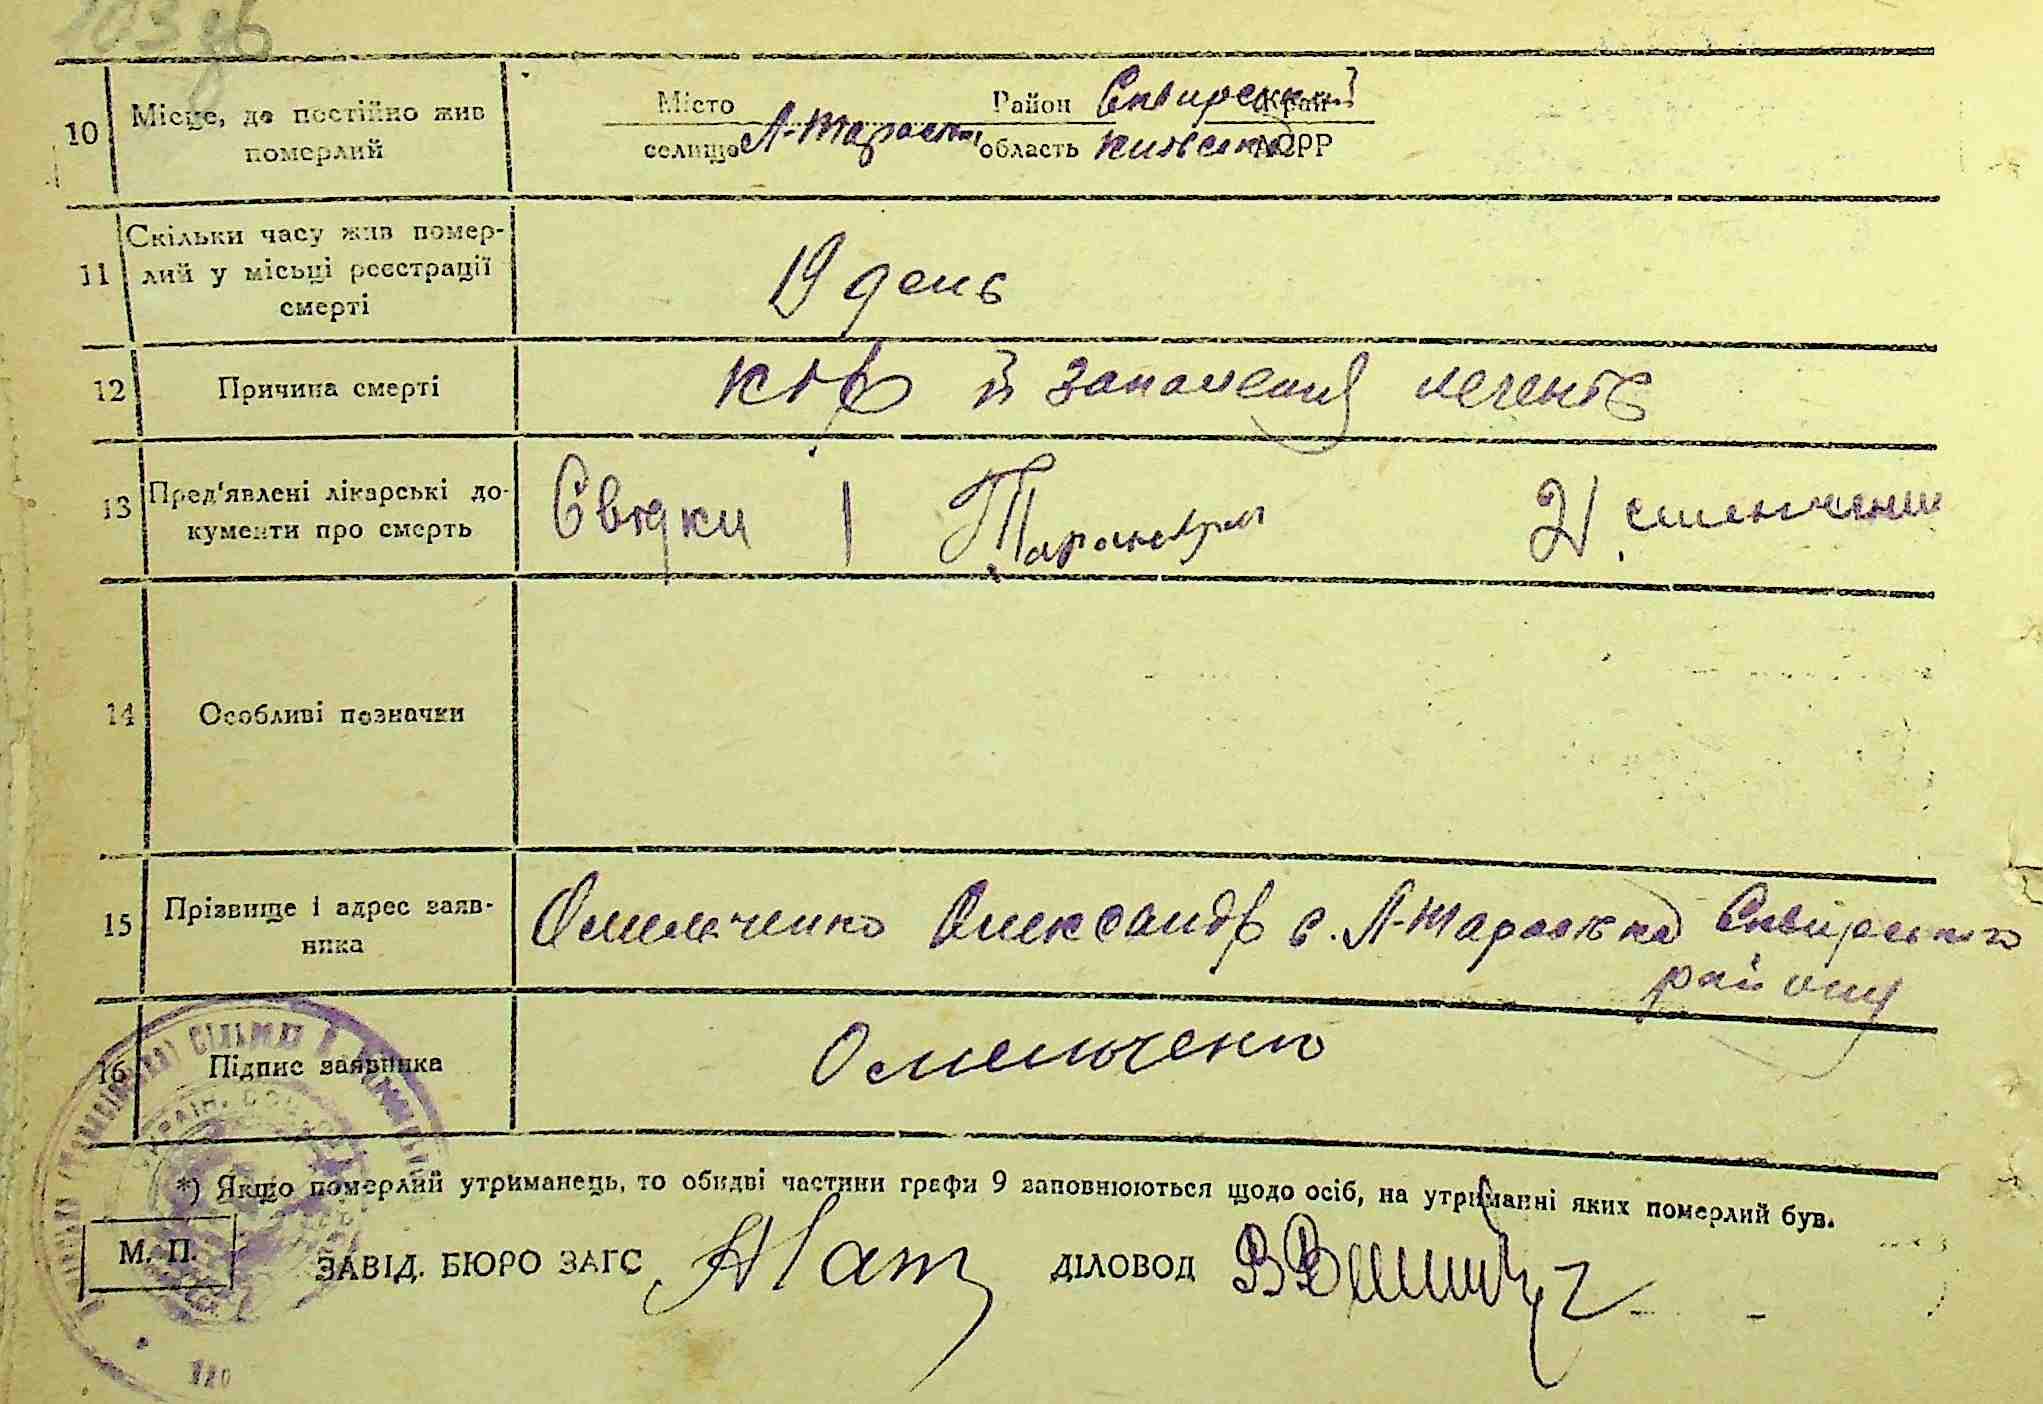 103 зв
10 Місце, де постійно жив померлий
Місто Район Сквирський Край
селище Л-Тарасівка область Київська АСРР
11 Скільки часу жив помер-
лий у місьці реєстрації
смерті
19 день
12 Причина смерті
кір й запалення легенів
13 Пред'явлені лікарські до-
кументи про смерть
Свідки 1 2
14 Особливі позначки
15 Прізвище і адрес заяв-
ника
Омельченко Олександр с. Л-Тарасівка Сквирського
району
16 Підпис заявника
Омельченко
*) Якщо померлий утриманець, то обидві частини графи 9 заповнюються щодо осіб, на утриманні яких померлий був.
М. П.
ЗАВІД. БЮРО ЗАГС ДІЛОВОД